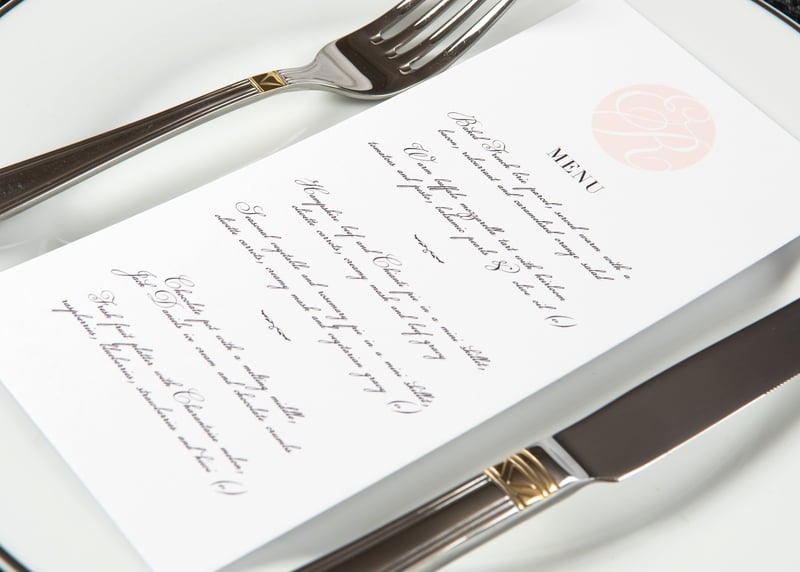 ER
MENU
Baked French brie parcel, served warm with a
bacon, redcurrant and caramelised orange salad
Warm buffalo mozzarella tart with heirloom
tomatoes and pesto, balsamic pearls & olive oil (v)
Hampshire beef and Chianti pie in a mini skillet,
chantenay carrots, creamy mash and beef gravy
Seasonal vegetable and rosemary pie in a mini skillet,
carrots, creamy mash and vegetarian gravy (v)
Chocolate pot with a melting middle,
Jack Daniels ice cream and chocolate crumbs
Fresh fruit platter with Charentaise melon,
raspberries, blueberries, strawberries and kiwi (v)